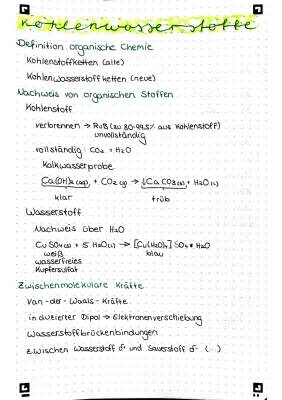 Kohlenwasserstoffe
Definition organische Chemie
Kohlenstoffketten (alte)
Kohlenwasserstoffketten (neue)
Nachweis von organischen Stoffen
Kohlenstoff
verbrennen → Ruß (zu 80-99,5% aus Kohlenstoff)
unvollständig
vollständig: CO₂ + H₂O
Kalkwasserprobe
Ca(OH)₂ (aq) + CO₂ (g) → ↓CaCO₃ (s) + H₂O (l)
klar trüb
Wasserstoff
Nachweis über H₂O
CuSO₄ (s) + 5 H₂O (l) → [Cu(H₂O)₄] SO₄ • H₂O
weiß blau
wasserfreies
Kupfersulfat
Zwischenmolekulare Kräfte
Van-der-Waals-Kräfte
induzierter Dipol → Elektronenverschiebung
Wasserstoffbrückenbindungen
zwischen Wasserstoff δ+ und Sauerstoff δ- (...)